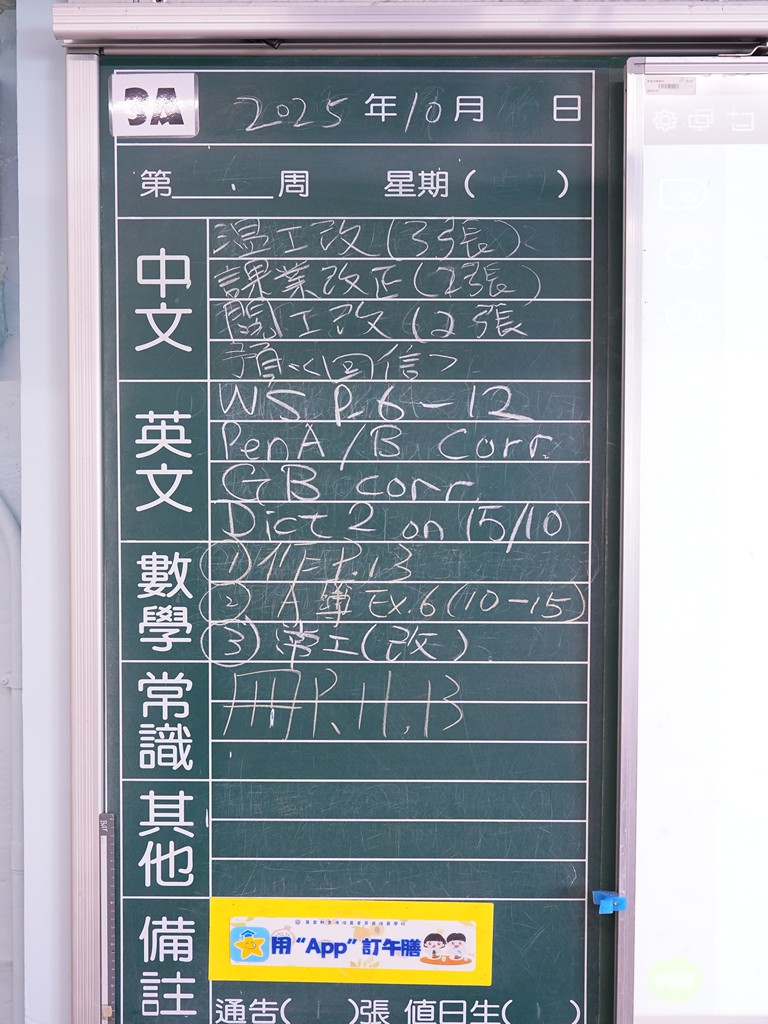 3A
2025年10月 日
第 周 星期( )
中文
溫工改(3張)
課業改正(2張)
閱工改(2張
預<回信>
英文
WS P.6-12
Pen A/B Corr.
GB corr.
Dict 2 on 15/10
數學
①作P.13
② A簿 Ex.6(10-15)
③ 常工(改)
常識
冊P.11,13
其他
備註
用“App”訂午膳
通告( )張 值日生( )